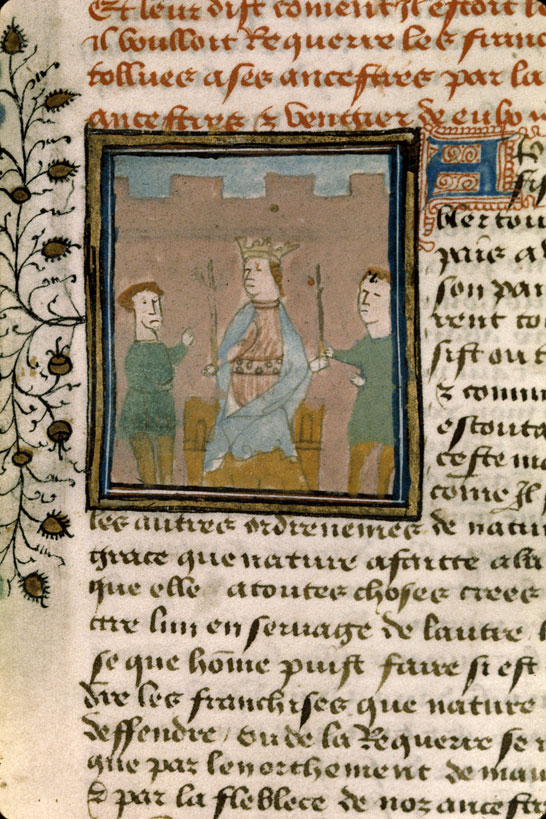 Et leur dist coment Il estoit l
Il voulloit Requerre les franc
tollues a ses ancestres par la
ancestres & vengier de eulx
A
bler tou
pais a
son pai
rent
sist ou t
& comm
escouta
ceste ma
come Il
les autres ordrenemes de natu
grace que nature a faitte a la
que elle a toutes choses crees
ttre lun en seruage de lautre
se que hôme puist faire si est
dre les franchises que nature
deffendre / Ou de la Requerre se
que par lenorthement de mau
& par la fleblece de noz ancest